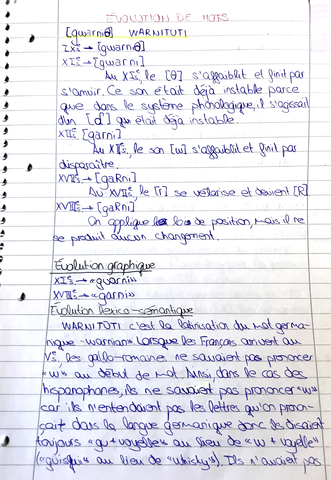 ÉVOLUTION DE MOTS
[gwarniθ] WARNITUTI
IXE → [gwarniθ]
XIE → [gwarni]
Au XIE, le [θ] s'affaiblit et finit par
s'amuir. Ce son était déjà instable parce
que dans le système phonologique, il s'agissait
d'un [d] qui était déjà instable.
XIIE [garni]
Au XIIE, le son [w] s'affaiblit et finit par
disparaître.
XVIIE → [gaRni]
Au XVIIE, le [r] se vélarise et devient [R]
XVIIIE → [gaRni]
On applique la loi de position, mais il ne
se produit aucun changement.
Évolution graphique
XIE → «guarni»
XVIIIE → «garni»
Évolution lexico-sémantique
WARNITUTI c'est la latinisation du mot germa-
nique «warnian». Lorsque les Français arrivent au
VE, les gallo-romains ne savaient pas prononcer
«w» au début de mot. Ainsi, dans le cas des
hispanophones, ils ne savaient pas prononcer «w»
car ils n'entendaient pas les lettres qu'on pronon-
çait dans la langue germanique donc ils disaient
toujours «gu + voyelle» au lieu de «w + voyelle»
(«guisqui» au lieu de «whisky»). Ils n'avaient pas